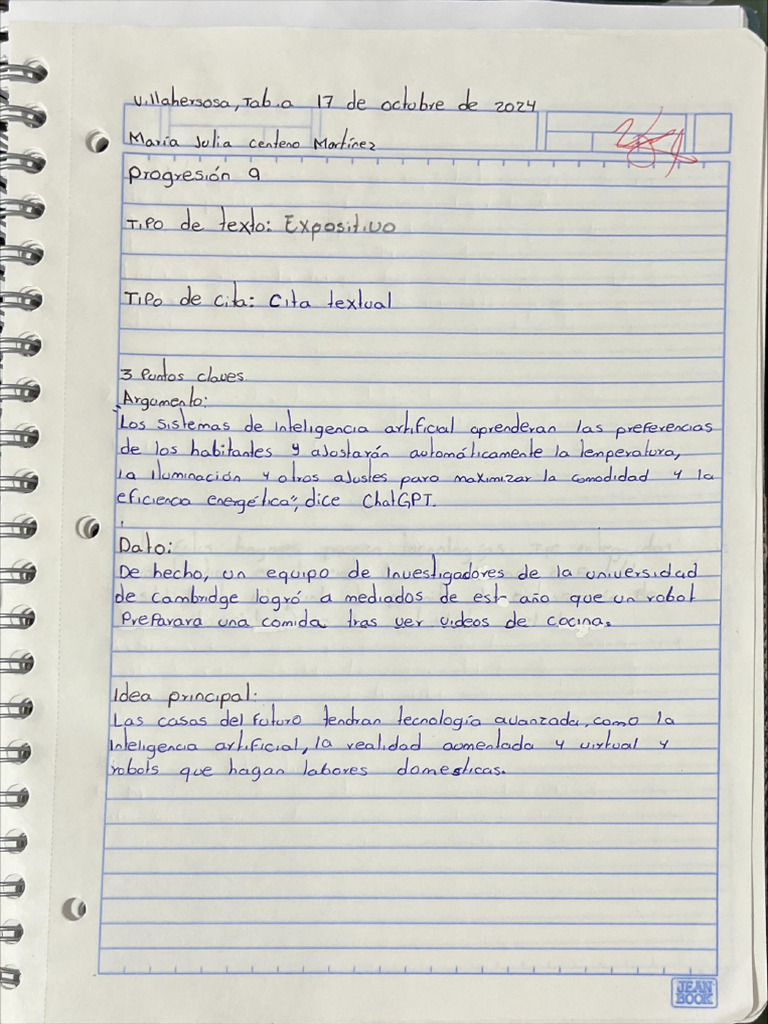 Villahersosa, Tab.a 17 de octubre de 2024
María Julia Centeno Martínez
Progresión 9
Tipo de texto: Expositivo
Tipo de cita: Cita textual
3 Puntos claves
Argumento:
"Los sistemas de inteligencia artificial aprenderan las preferencias
de los habitantes y ajostarán automáticamente la temperatura,
la iluminación y otros ajustes para maximizar la comodidad y la
eficienca energética", dice ChatGPT.
Dato:
De hecho, un equipo de investigadores de la universidad
de cambridge logró a mediados de este año que un robot
Preparara una comida tras ver videos de cocina.
Idea principal:
Las casas del futuro tendran tecnología avanzada, como la
inteligencia artificial, la realidad aomentada y virtual y
robots que hagan labores domesticas.
JEAN BOOK